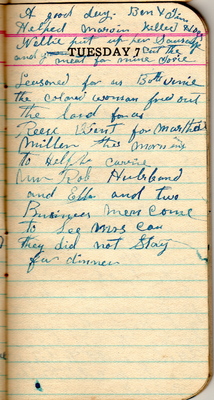 A good day. Ben & Jim
Helped Marvin Killed Hogs
Nellie put up her Sausage
and cut the
TUESDAY 7
meat for mine
Seasoned for us Both
the colard woman fried out
the lard for us
Reese Went for Martha
Millen this morning
to Help
Mrs Rob Hubbard
and Ella and two
Business men come
to See Mrs
they did not Stay
for dinner